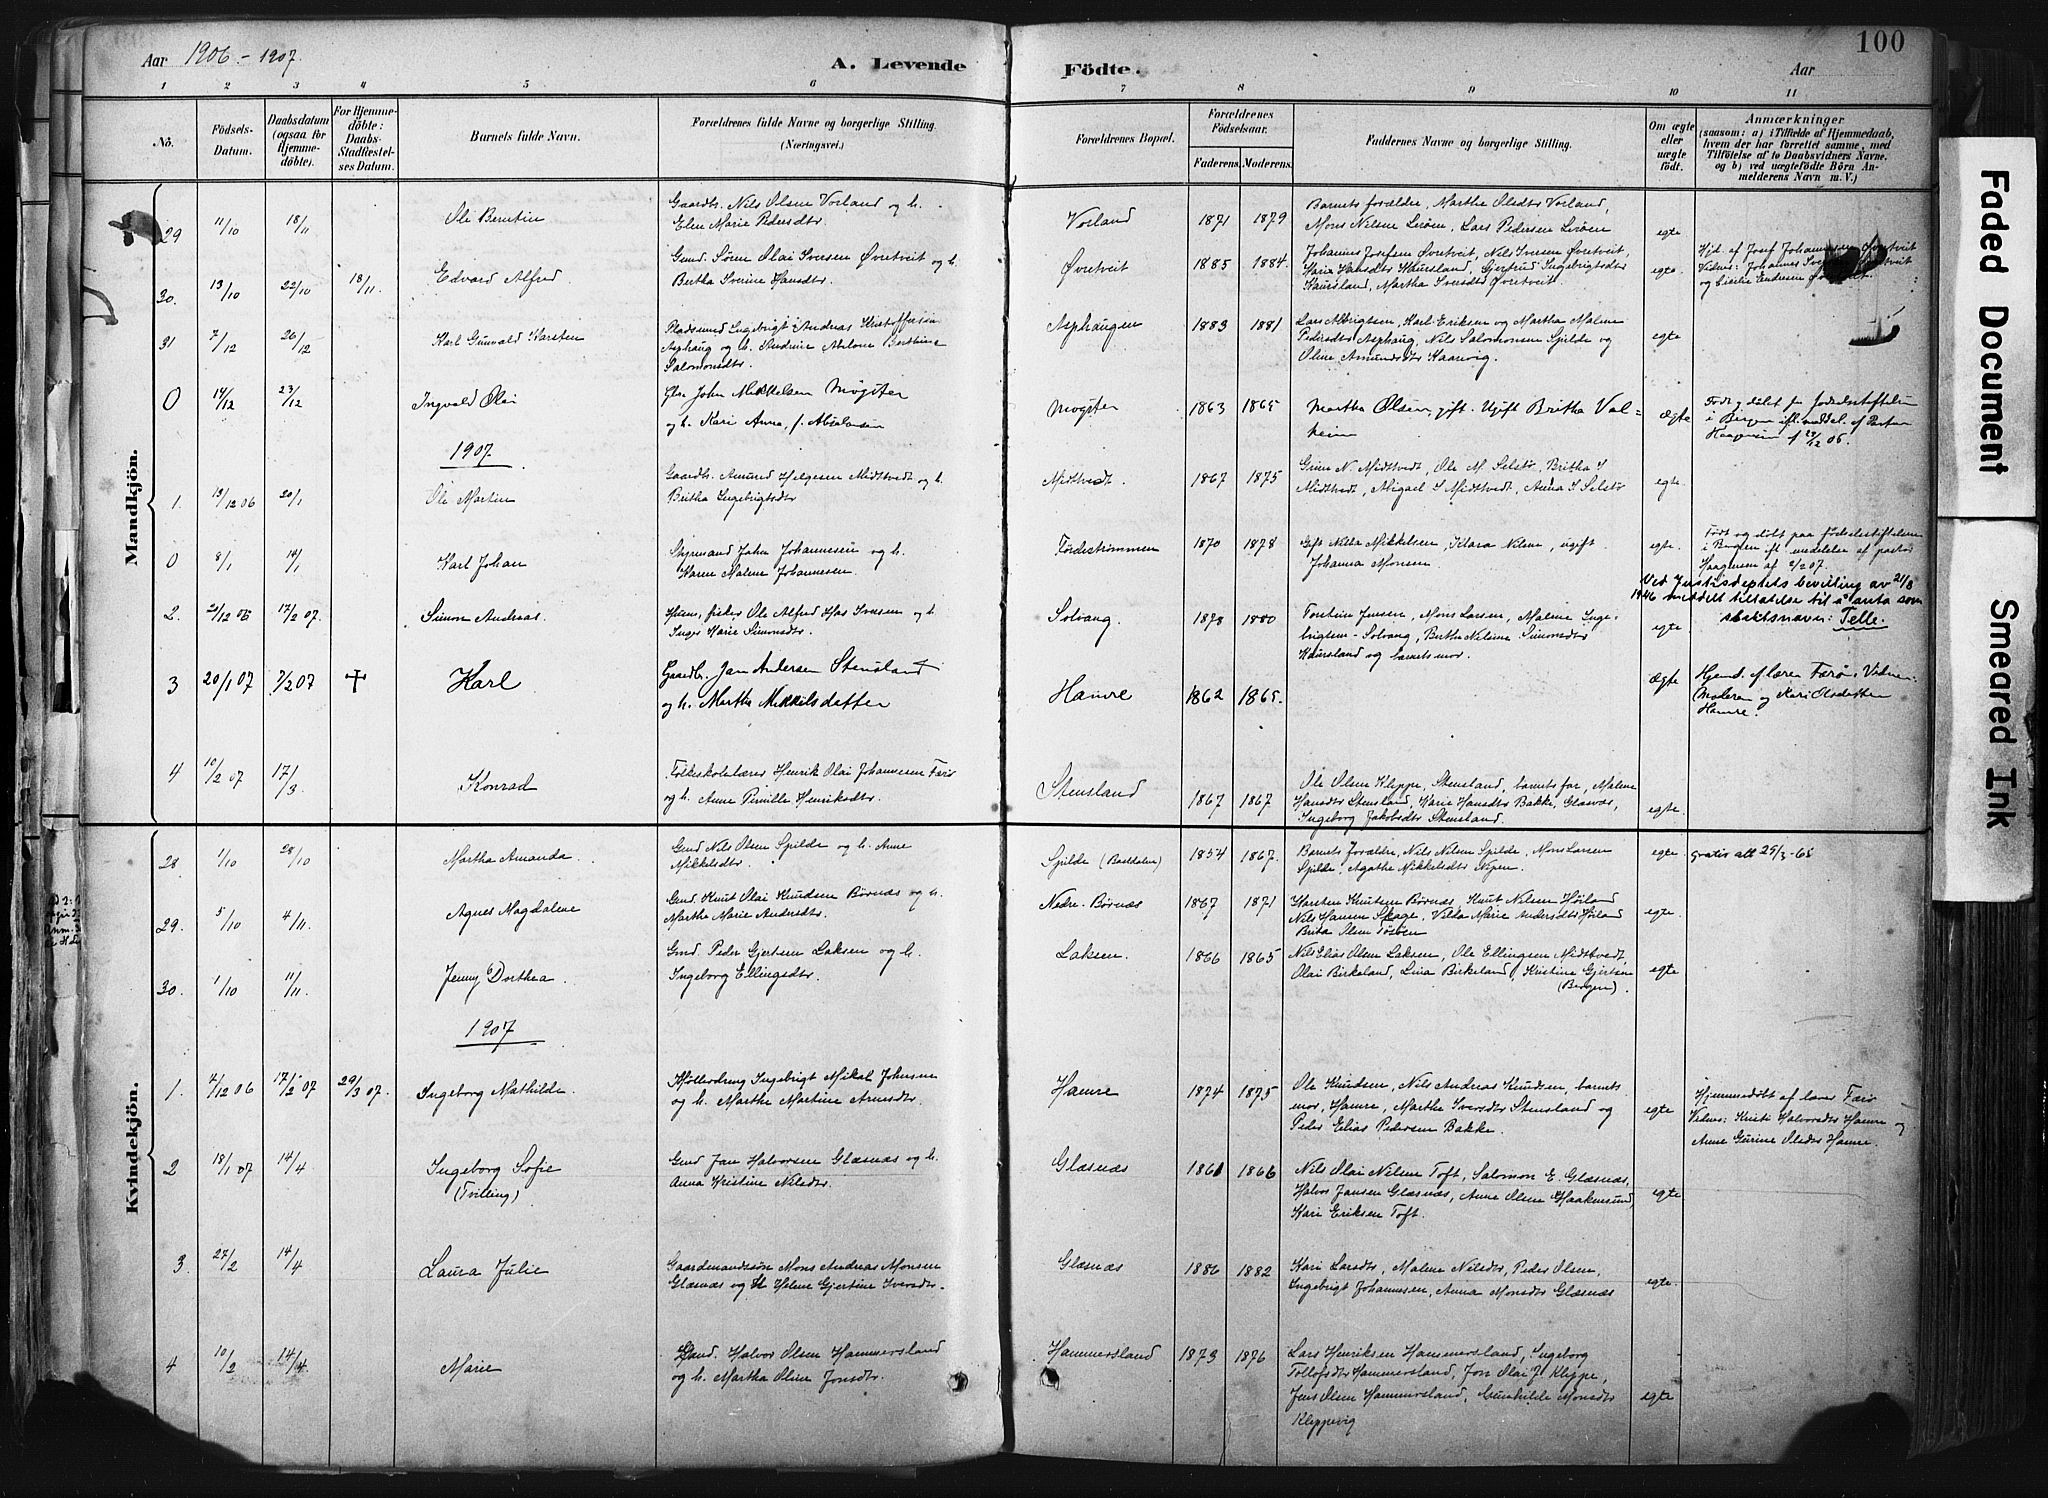 Aar 1906 - 1907.
A. Levende Födte.
Aar
100
1 2 3 4 5 6 7 8 9 10 11
No.
Födsels-Datum.
Daabsdatum (ogsaa for Hjemmedöbte).
For Hjemmedöbte: Daabs-Stadfestelses Datum.
Barnets fulde Navn.
Forældrenes fulde Navne og borgerlige Stilling.
(Næringsvei.)
Forældrenes Bopæl.
Forældrenes Födselsaar.
Faderens. Moderens.
Faddernes Navne og borgerlige Stilling.
Om ægte eller uægte födt.
Anmærkninger
(saasom: a) i Tilfælde af Hjemmedaab,
hvem der har forrettet samme, med
Tilföielse af to Daabsvidners Navne.
og b) ved uægtefödte Börn An-
melderens Navn m. V.)
Mandkjön.
29 11/10 18/11 Ole Berntin
Gaardb. Nils Olsen Vorland og h.
Elen Marie Pedersdtr.
Vorland 1871 1879
Barnets forælder, Marthe Olsdtr Vorland,
Mons Nilsen Liröen, Lars Pedersen Liröen
egte
30. 13/10 22/10 18/11. Edvard Alfred
Gmd. Sören Olai Iversen Øvretveit og h.
Bertha Sverine Hansdtr.
Øvretvit 1885 1884.
Johannes Josefsen Øvretvit, Nils Iversen Øvretveit,
Maria Hansdtr Haursland, Gjertrud Ingebrigtsdtr
Haursland, Martha Iversdtr Øvretveit.
egte.
Hjd. af Josef Johannessen Øvretvit
Vidner: Johannes
31 7/12 26/12 Karl Gunvald Karsten
Pladsmand Ingebrigt Andreas Kristoffersen
Asphaug og h. Andrine Abelone Berthine
Salomonsdtr
Asphaugen 1883 1881
Lars Albrigtsen, Karl Eriksen og Martha Malene
Pedersdtr Asphaug, Nils Salomonsen Spilde og
Oline Amundsdtr Kaarvig.
egte
0 14/12 23/12 Ingvald Olai
John Mikkelsen Møgster
og h. Kari Anna, f. Absalonsen
Møgster 1863 1865
Martha Olsen, gift. Ugift Britha Val-
heim
ægte
Født og døbt paa Fødselsstiftelsen
i Bergen ifl. meddel. af Pastor
Haagensen af 29/12 06.
1907
1. 13/12 06 20/1 Ole Martin
Gaardb. Amund Helgesen Midtvedt og h.
Britha Ingebrigtsdtr
Midtvedt. 1867 1875
Grim N. Midtvedt, Ole M. Selstö, Britha I
Midtvedt, Abigael I Midtvedt, Anna I Selstö
egte.
0 8/1 14/1 Karl Johan
Styrmand John Johannesen og h.
Karen Malene Johannesen.
Tødestrømmen 1870 1878
Gift Nilla Mikkelsen, Klara Nilsen, ugift.
Johanna Monsen
egte.
Født og døbt paa fødselsstiftelsen
i Bergen ifl. meddelelse af pastor
Haagensen af 2/2 07.
2. 21/12 06 17/2 07. Simon Andreas
Huusm. fisker Ole Alfred Has Iversen og h.
Inger Marie Simonsdtr.
Solvang. 1878 1880
Torstein Jensen, Mons Larsen, Malene Inge-
brigtsen - Solvang, Berthe Nilsine Simonsdtr
Haursland og barnets mor.
egte
Ved Justisdeptets bevilling av 21/8
1946 meddelt tillatelse til å anta som
slektsnavn: Telle.
3 20/1 07 7/2 07 † Karl
Gaardbr. Jan Andersen Stensland
og h. Marthe Mikkelsdatter
Hamre 1862 1865.
ægte
Hjemd. af lærer Færö. Vidner:
Moderen og Kari Olsdatter
Hamre.
4 10/2 07 17/3 Konrad
Folkeskolelærer Henrik Olai Johannesen Færö
og h. Anne Pernille Henriksdtr.
Stensland 1867 1867
Ole Olsen Klippe, Stensland, barnets far, Malene
Hansdtr Stensland, Karie Hansdtr Bakke, Glasvær,
Ingeborg Jakobsdtr Stensland.
egte.
Kvindekjön.
28. 1/10 28/10 Martha Amanda
Gmd Nils Olsen Spilde og h. Anne
Mikkelsdtr.
Spilde 1854 1867.
Barnets Forældre, Nils Nilsen Spilde, Mons Larsen
Spilde, Agathe Mikkelsdtr Nipen.
egte
gratis att 25/3-65
29. 5/10 4/11. Agnes Magdalene
Gmd. Knut Olai Knudsen Børnæs og h.
Marthe Marie Andersdtr.
Nedre. Børnæs 1867 1871
Karsten Knutsen Børnæs, Knut Nilsen Høiland
Nils Hansen Skage, Villa Marie Andersdtr Høiland
Brita Olsen
egte.
30. 1/10 11/11. Jenny Dorthea.
Gmd. Peder Gjertsen Laksen og h.
Ingeborg Ellingsdtr.
Laksen. 1866 1865
Nils Elias Olsen Laksen, Ole Ellingsen Midtvedt,
Olai Birkeland, Lina Birkeland, Kristine Gjertsen
(Bergen).
egte
1907
1. 4/12 06 17/2 07 29/3 07. Ingeborg Mathilde
Møllerdreng Ingebrigt Mikal Johnsen
og h. Marthe Martine Arnesdtr.
Hamre 1874 1875
Ole Knudsen, Nils Andreas Knudsen, barnets
mor, Hamre, Marthe Iversdtr Stensland og
Peder Elias Pedersen Bakke.
egte
Hjemmedøbt af lærer Færö
Vidner: Kristi Halvorsdtr Hamre og
Anne Gurine Olsdtr Hamre.
2 18/1 07 14/4. Ingeborg Sofie
(Tvilling)
Gmd. Jan Halvorsen Glæsnæs og h.
Anna Kristine Nilsdtr.
Glæsnæs 1861 1866
Nils Olai Nilsen Toft, Salomon E. Glæsnæs,
Halvor Jansen Glæsnæs, Anne Oline Haakensund,
Kari Eriksen Toft.
egte
3. 27/2 14/4 Laura Julie
Gaardmandssøn Mons Andreas Monsen
Glæsnæs og H Helene Gjertine Iversdtr.
Glæsnæs 1886 1882
Kari Larsdtr, Malene Nilsdtr, Peder Olsen,
Ingebrigt Johannessen, Anna Monsdtr Glæsnæs
egte.
4 10/2 14/4 Marie
Gmd. Halvor Olsen Hammersland
og h. Martha Oline Jonsdtr.
Hammersland 1873 1876
Lars Henriksen Hammersland, Ingeborg
Tollofsdtr Hammersland, Jon Olai J. Klippe,
Jens Olsen Hammersland, Gunhilde Monsdtr
Klippevig
egte
Faded Document
Smeared Ink